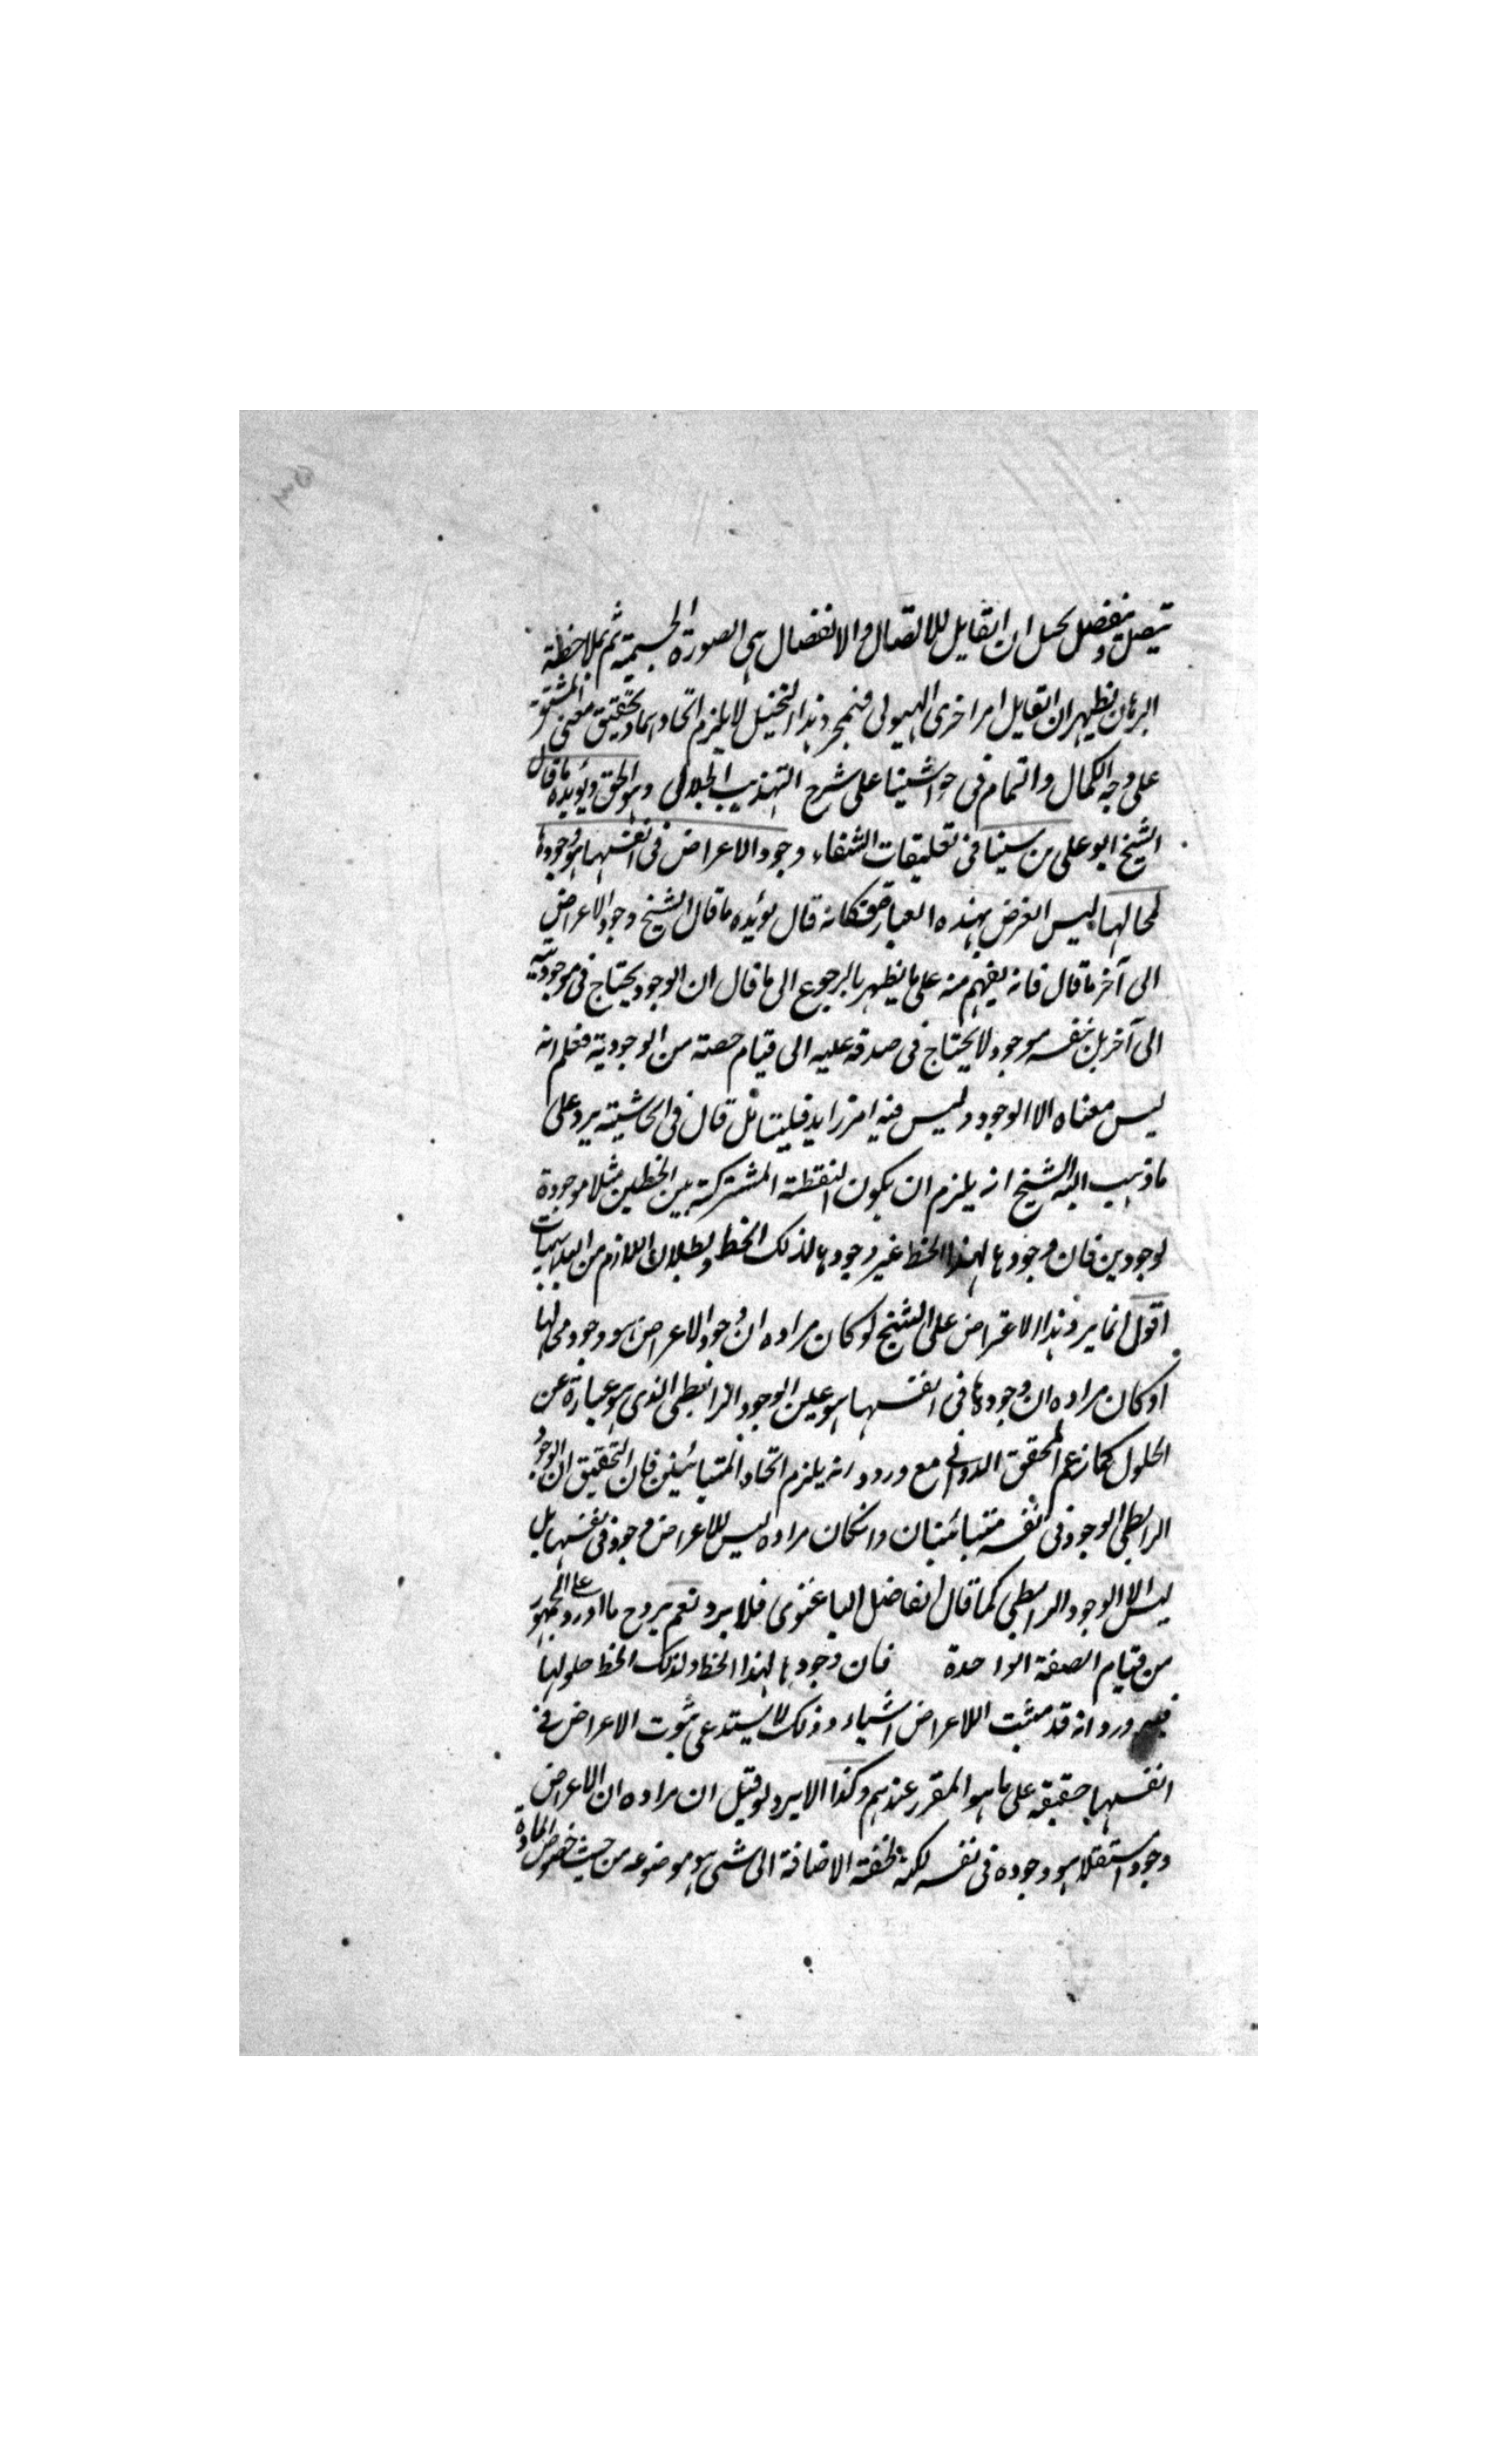 يتصل وينفصل يحيل ان القابل للاتصال والانفصال هى الصورة الجسمية ثم بملاحظة
البرهان يظهر ان القابل امر اخرى الهيولى فبمجرد هذا التخيل لا يلزم اتحادهما وتحقيق معنى المشتق
على وجه الكمال والتمام فى حواشينا على شرح التهذيب الجلالى وهو الحق ويؤيده ما قال
الشيخ ابو على بن سينا فى تعليقات الشفاء وجود الاعراض فى انفسها هو وجودها
لمحالها ليس الغرض بهذه العبارة فكانه قال يؤيده ما قال الشيخ وجود الاعراض
الى آخر ما قال فانه يفهم منه على ما يظهر بالرجوع الى ما قال ان الوجود يحتاج فى موجوديته
الى آخر بل بنفسه موجود لا يحتاج فى صدقه عليه الى قيام حصته من الوجودية فعلم انه
ليس معناه الا الوجود وليس فيه امر زايد فليتامل قال فى الحاشية يرد على
ما ذهب اليه الشيخ انه يلزم ان يكون النقطة المشتركة بين الخطين مثلا موجودة
لوجودين فان وجودها لهذا الخط غير وجودها لذلك الخط وبطلان اللازم من البديهيات
اقول انما يرد هذا الاعتراض على الشيخ لو كان مراده ان وجود الاعراض هو وجود محالها
او كان مراده ان وجودها فى انفسها هو عين الوجود الرابطى الذى هو عبارة عن
الحلول كما زعم المحقق الدوانى مع ورود انه يلزم اتحاد المتبائنين فان التحقيق ان الوجود
الرابطى الوجود فى نفسه متبائنان وان كان مراده ليس للاعراض وجود فى نفسها بل
ليس الا الوجود الرابطى كما قال الفاضل الباغنوى فلا يرد نعم يرد ح ما اورد على الجمهور
من قيام الصفة الواحدة فان وجودها لهذا الخط ولذلك الخط حلولها
ورد انه قد مثبت اللاعراض اشياء وذلك لا يستدعى ثبوت الاعراض فى
انفسها حقيقه على ما هو المقرر عندهم وكذا الا يرد لو قيل ان مراده ان الاعراض
وجود استقلا هو وجوده فى نفسه لكنه لحقته الاضافة الى شى هو موضوعه من حيث خصوص المادة